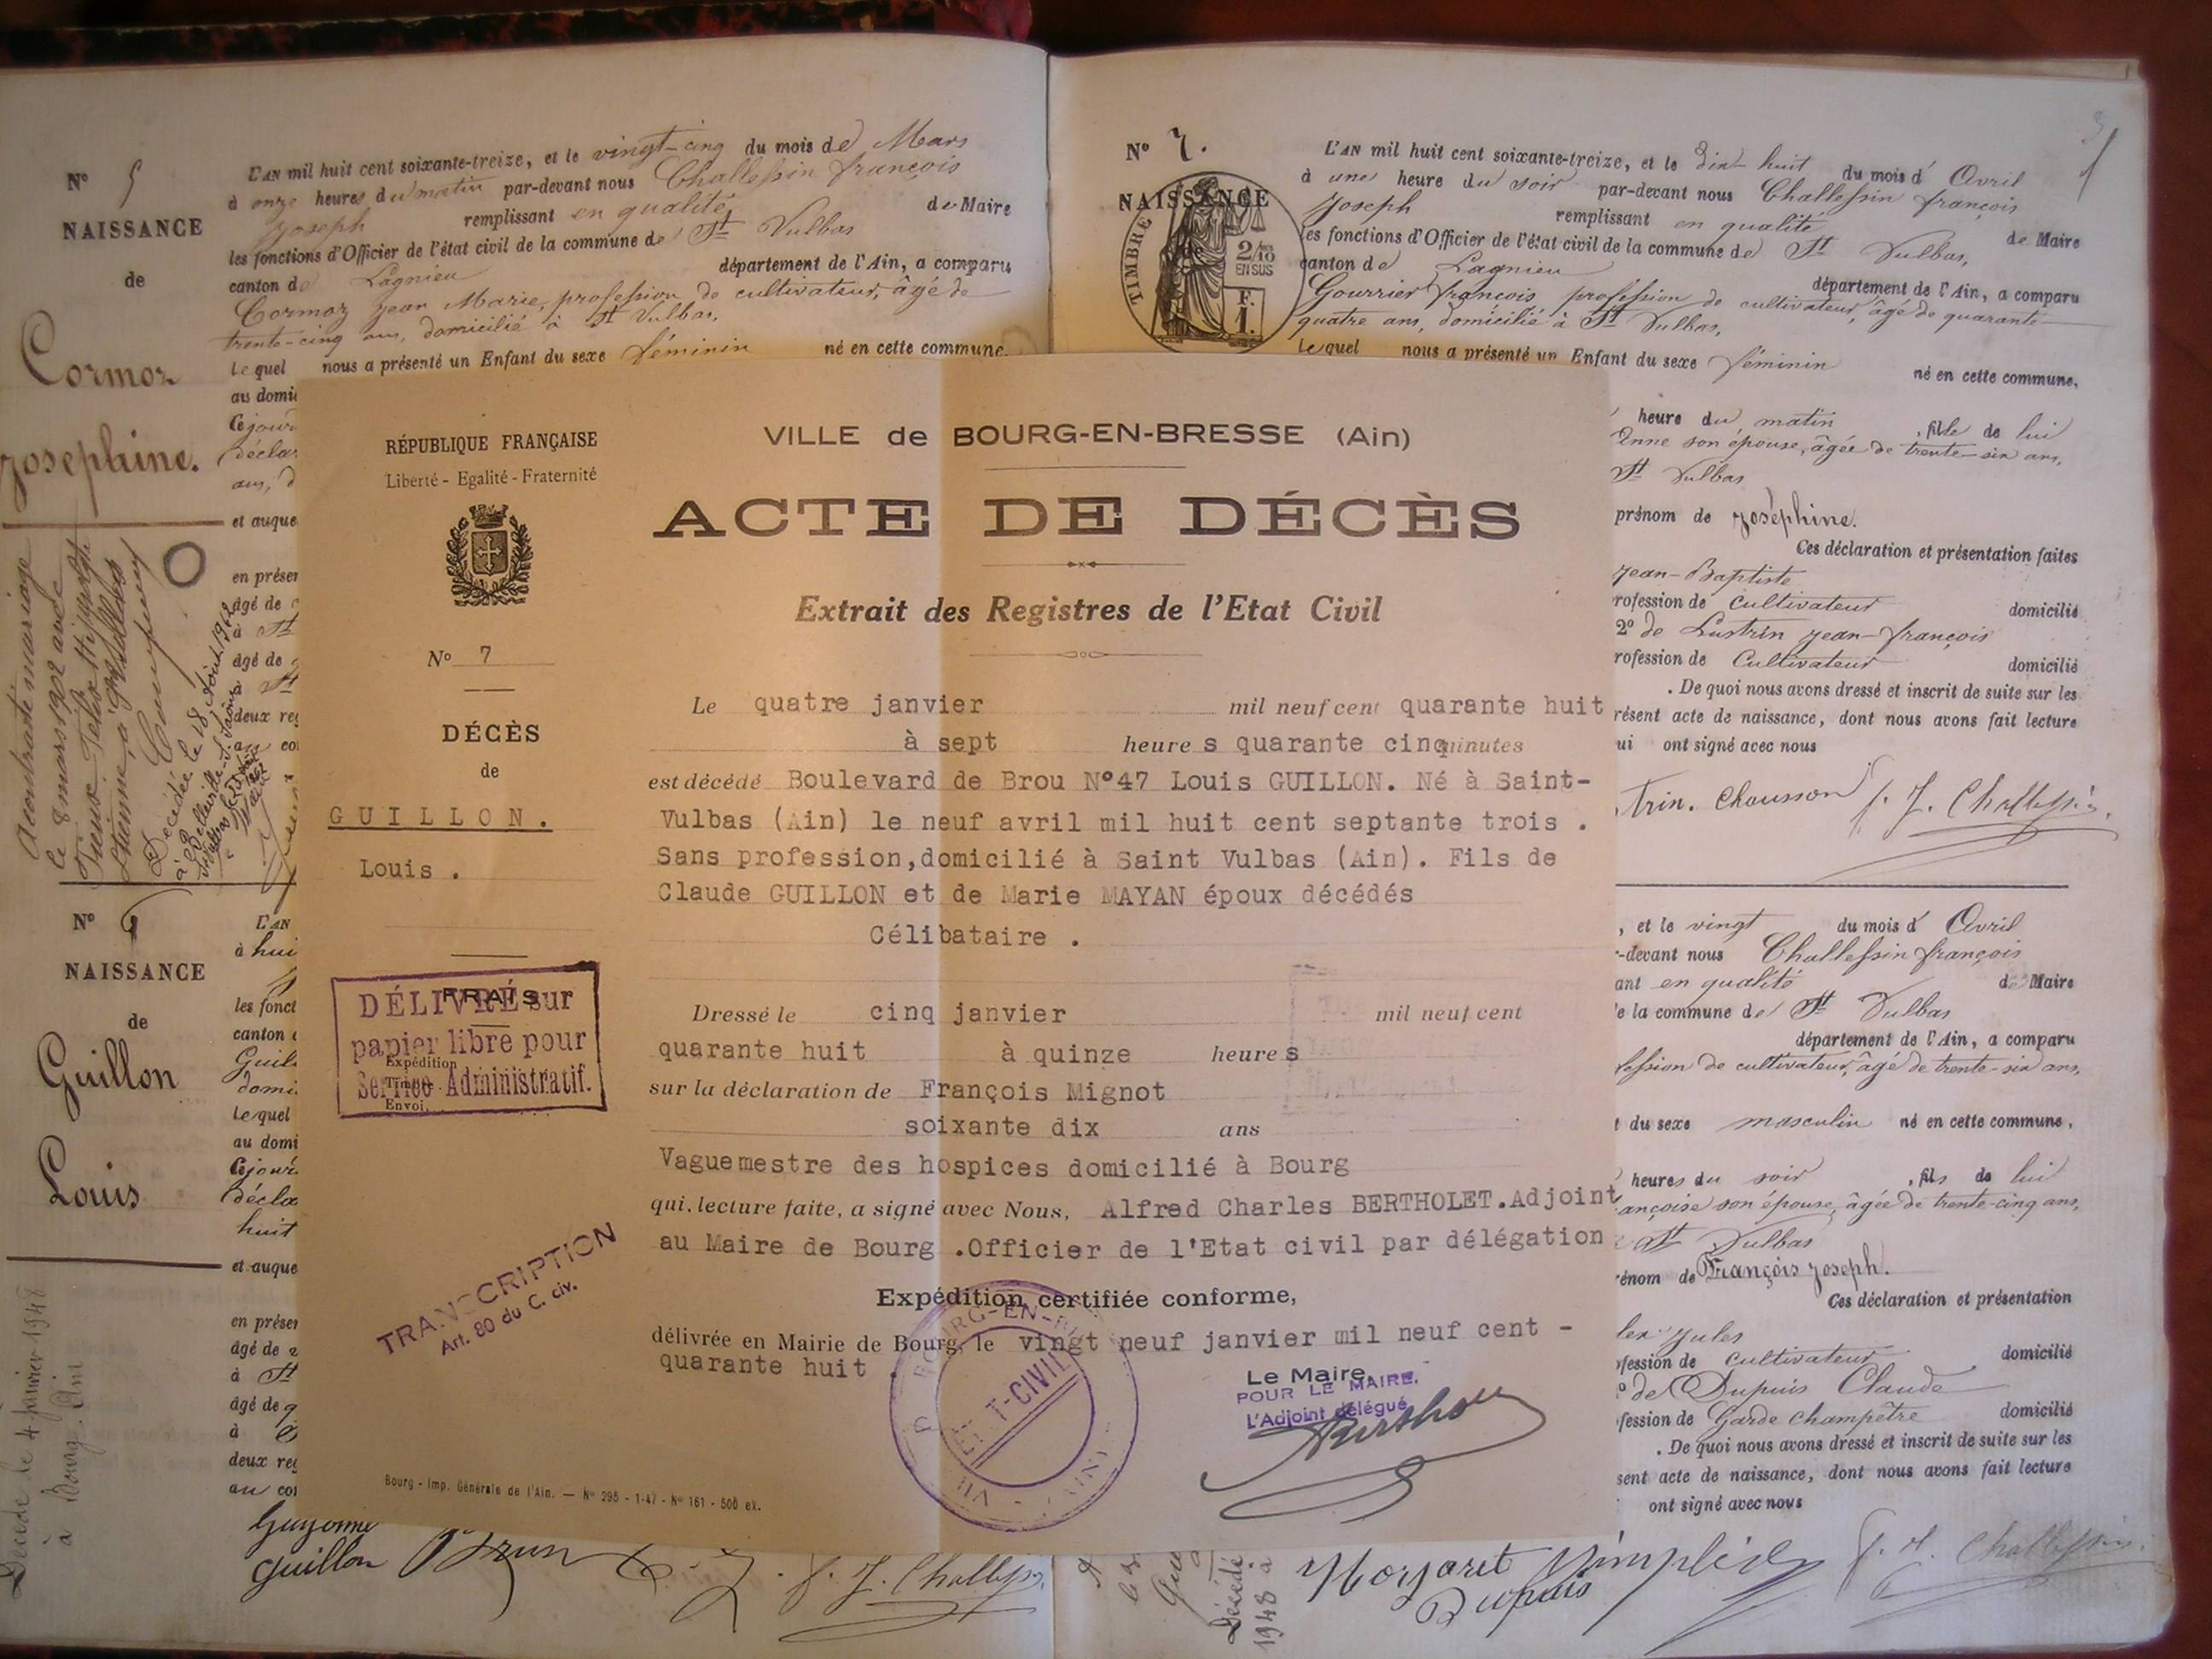 Nº 5
NAISSANCE
de
Cormoz
Josephine.
L'AN mil huit cent soixante-treize, et le vingt-cinq du mois de Mars
à onze heures du matin par-devant nous Challessin françois
Joseph remplissant en qualité de Maire
les fonctions d'Officier de l'état civil de la commune de St Vulbas
canton de Lagnieu département de l'Ain, a comparu
Cormoz Jean Marie, profession de cultivateur, âgé de
trente-cinq ans, domicilié à St Vulbas,
Lequel nous a présenté un Enfant du sexe féminin né en cette commune.
au domi
Cejour
décla
ans, d
et auque
en présen
âgé de
à St
âgé de
St
deux reg
A contracté mariage
le 8 mars 1902 avec
Décédée le 18 Août 1962
Nº 6
NAISSANCE
de
Guillon
Louis
L'AN
à hui
les fonct
canton
Guil
domi
Lequel
au domi
Cejour
décla
huit
et auque
en présen
âgé de
à St
âgé de
à
deux reg
au co
Décédé le 4 janvier 1948
à Bourg. Ain
Guyonne
Guillon Brun f. J. Challessin
Nº 7.
NAISSANCE
TIMBRE
2/10
EN SUS
F.
1.
L'AN mil huit cent soixante-treize, et le dix-huit du mois d'Avril
à une heure du soir par-devant nous Challessin françois
Joseph remplissant en qualité de Maire
les fonctions d'Officier de l'état civil de la commune de St Vulbas,
canton de Lagnieu département de l'Ain, a comparu
Gourrier françois, profession de cultivateur, âgé de quarante-
quatre ans, domicilié à St Vulbas,
Lequel nous a présenté un Enfant du sexe féminin né en cette commune,
heure du matin, fille de lui
Anne son épouse, âgée de trente-six ans,
St Vulbas
prénom de Joséphine.
Ces déclaration et présentation faites
Jean-Baptiste
rofession de cultivateur domicilié
2º de Lustrin Jean-françois
rofession de Cultivateur domicilié
. De quoi nous avons dressé et inscrit de suite sur les
résent acte de naissance, dont nous avons fait lecture
ui ont signé avec nous
trin. Chousson f. J. Challessin.
, et le vingt du mois d'Avril
-devant nous Challessin françois
ant en qualité de Maire
e la commune de St Vulbas
département de l'Ain, a comparu
fession de cultivateur, âgé de trente-six ans,
t du sexe masculin né en cette commune,
heures du soir, fils de lui
ançoise son épouse, âgée de trente-cinq ans,
St Vulbas
rénom de François Joseph.
Ces déclaration et présentation
Jules
fession de Cultivateur domicilié
º de Dupuis Claude
fession de Garde champêtre domicilié
. De quoi nous avons dressé et inscrit de suite sur les
sent acte de naissance, dont nous avons fait lecture
ont signé avec nous
Décédé
1948 à
Dupuis
f. J. Challessin.
RÉPUBLIQUE FRANÇAISE
Liberté - Egalité - Fraternité
Nº 7
DÉCÈS
de
GUILLON.
Louis .
FRAIS
Expédition
Timbre
Envoi
DÉLIVRÉ sur
papier libre pour
Service Administratif.
TRANSCRIPTION
Art. 80 du C. civ.
VILLE de BOURG-EN-BRESSE (Ain)
ACTE DE DÉCÈS
Extrait des Registres de l'Etat Civil
Le quatre janvier mil neuf cent quarante huit
à sept heures quarante cinq minutes
est décédé Boulevard de Brou Nº47 Louis GUILLON. Né à Saint-
Vulbas (Ain) le neuf avril mil huit cent septante trois .
Sans profession,domicilié à Saint Vulbas (Ain). Fils de
Claude GUILLON et de Marie MAYAN époux décédés
Célibataire .
Dressé le cinq janvier mil neuf cent
quarante huit à quinze heures
sur la déclaration de François Mignot
soixante dix ans
Vaguemestre des hospices domicilié à Bourg
qui, lecture faite, a signé avec Nous, Alfred Charles BERTHOLET.Adjoint
au Maire de Bourg .Officier de l'Etat civil par délégation
Expédition certifiée conforme,
délivrée en Mairie de Bourg, le vingt neuf janvier mil neuf cent -
quarante huit .
Le Maire,
POUR LE MAIRE,
L'Adjoint délégué
ETAT-CIVIL
Bourg - Imp. Générale de l'Ain. — Nº 295 - 1-47 - Nº 161 - 500 ex.